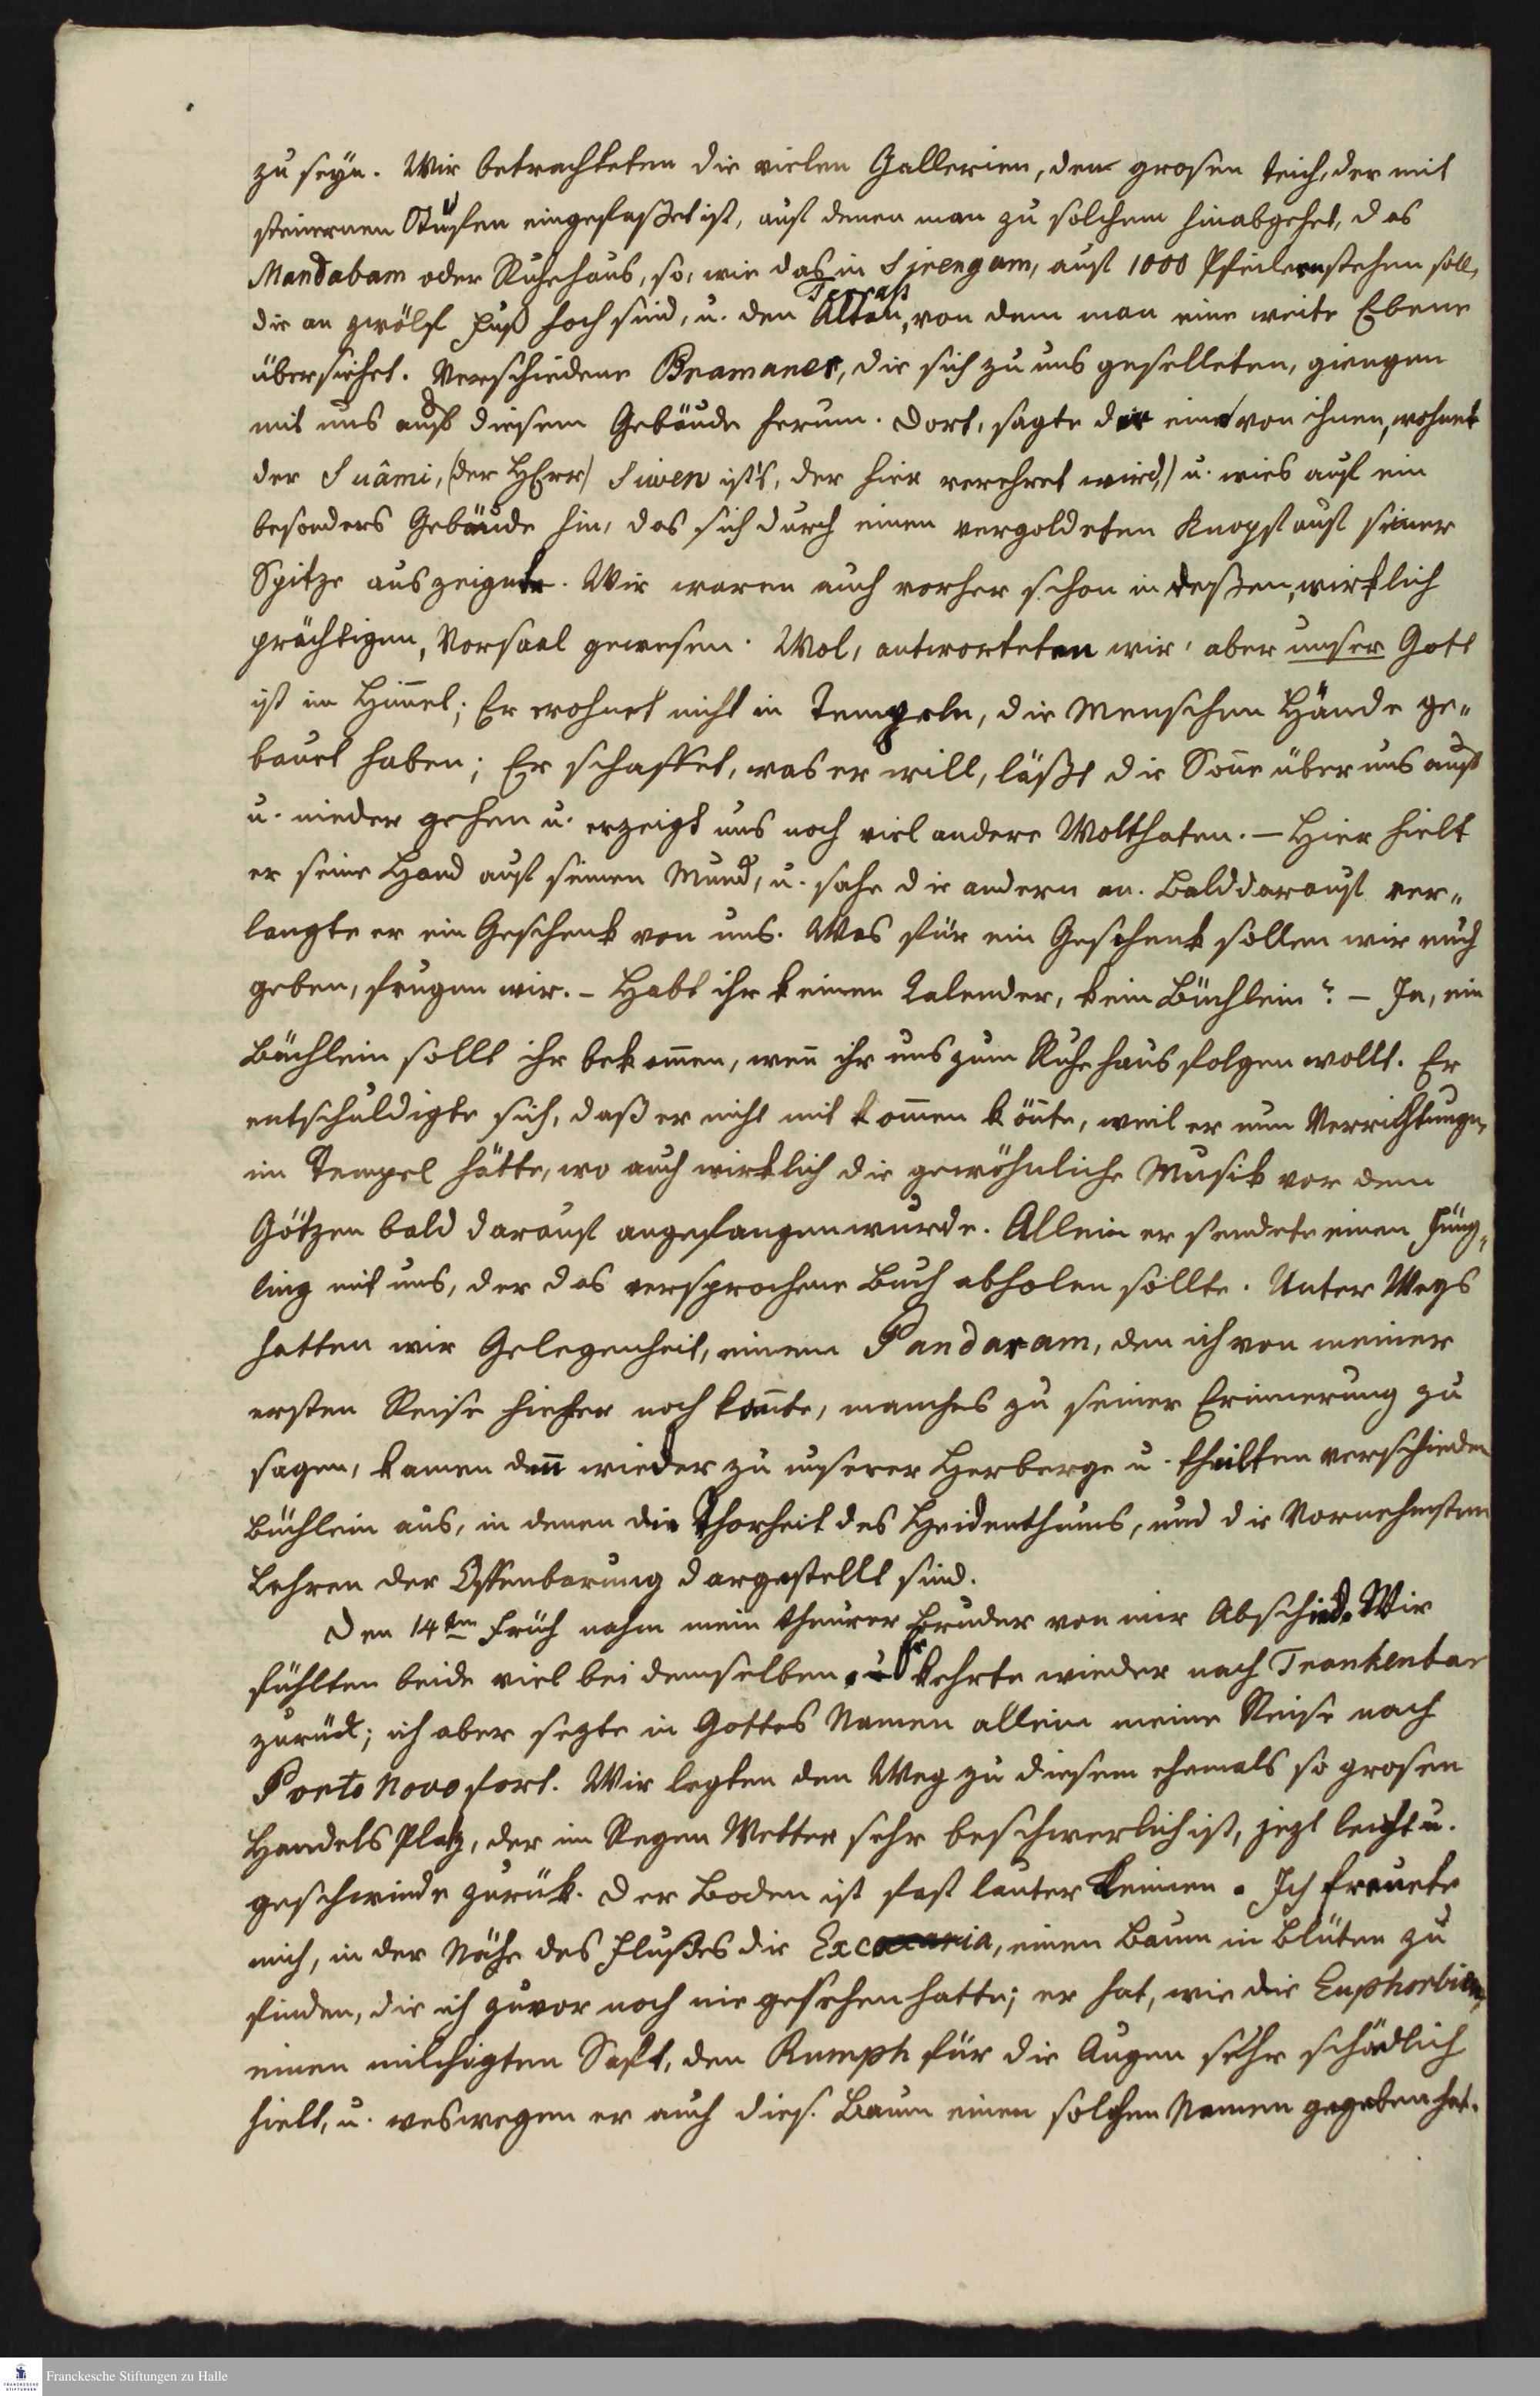 zu seyn. Wir betrachteten die vielen Gallerien, den grosen teich, der mit
steinernen Stufen eingefaßet ist, auf denen man zu solchem hinabgehet, das
Mandabam oder Ruhehaus, so, wie das in Sirengam, auf 1000 Pfeilern stehen soll,
Terraß
die an zwölf Fuß hoch sind, u. den Altan, von dem man eine weite Ebene
übersiehet. Verschiedene Bramaner, die sich zu uns geselleten, giengen
mit uns auf diesem Gebäude herum. Dort, sagte der eine von ihnen, wohnet
der Suâmi, (der HErr) Siwen ist's, der hier verehret wird,) u. wies auf ein
besonders Gebäude hin, das sich durch einen vergoldeten Knopf auf seiner
Spitze auszeignete. Wir waren auch vorher schon in deßen, wirklich
prächtigen, Vorsaal gewesen. Wol, antworteten wir, aber unser Gott
ist im Him̄el; Er wohnet nicht in Tempeln, die Menschen Hände ge„
bauet haben; Er schaffet, was er will, läßt die Son̄e über uns auf
u. nieder gehen u. erzeigt uns noch viel andere Wolthaten. – Hier hielt
er seine Hand auf seinen Mund, u. sahe die andern an. Bald darauf ver„
langte er ein Geschenk von uns. Was für ein Geschenk sollen wir euch
geben, frugen wir. – Habt ihr keinen Calender, kein Büchlein? – Ja, ein
Büchlein sollt ihr bekom̄en, wen̄ ihr uns zum Ruhehaus folgen wollt. Er
entschuldigte sich, daß er nicht mit kom̄en kön̄te, weil er nun Verrichtungen
im Tempel hätte, wo auch wirklich die gewöhnliche Musik vor dem
Götzen bald darauf angefangen wurde. Allein er sendete einen Jüng„
ling mit uns, der das versprochene Buch abholen sollte. Unter Wegs
hatten wir Gelegenheit, einem Pandaram, den ich von meiner
ersten Reise hieher noch kan̄te, manches zu seiner Erinnerung zu
sagen, kamen den̄ wieder zu unserer Herberge u. theilten verschieden
Büchlein aus, in denen die Thorheit des Heidenthums, und die Vornehmsten
Lehren der Offenbarung dargestellt sind.
Den 14ten Früh nahm mein theurer Bruder von mir Abschied. Wir
fühlten beide viel bei demselben. Er kehrte wieder nach Trankenbar
zurück; ich aber sezte in Gottes Namen allein meine Reise nach
Porto Novo fort. Wir legten den Weg zu diesem ehemals so grosen
Handels Platz, der im Regen Wetter sehr beschwerlich ist, jezt leicht u.
geschwinde zurük. Der Boden ist fast lauter Leimen. Ich freuete
mich, in der Nähe des Flußes die Excœcaria, einen Baum in Blüten zu
finden, die ich zuvor noch nie gesehen hatte; er hat, wie die Euphorbien,
einen milchigten Saft, den Rumph für die Augen sehr schädlich
hielt, u. weswegen er auch dies. Baum einen solchen Namen gegeben hat.
Franckesche Stiftungen zu Halle